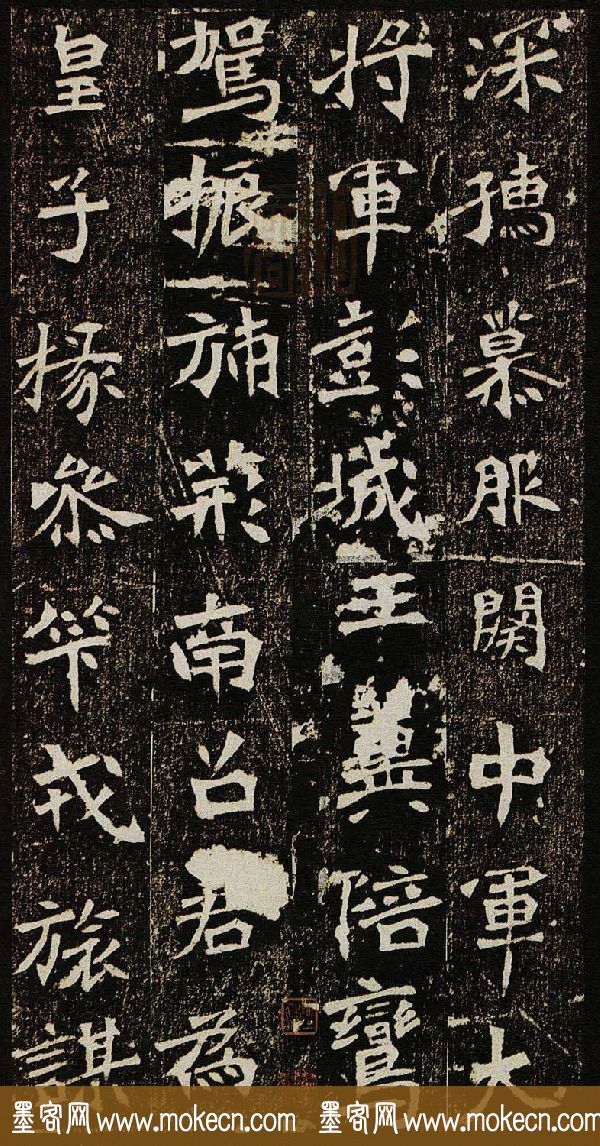 深慕服闋中軍大
將軍彭城王翼陪鸞
駕振旆荊南召君為
皇子掾參戎旅謀
墨客网 www.mokecn.com 墨客网 www.mokecn.com